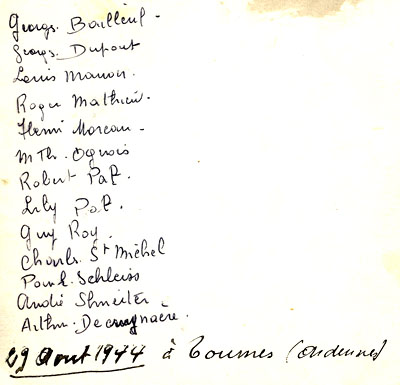 Georges. Bailleul -
Georges. Dupont
Louis Manon.
Roger Mathieu.
Henri Moreau -
M Th. Ognois
Robert Paf.
Lily Paf.
Guy Roy.
Charles. St Michel
Paul. Schleiss
André Shneiter
Arthur. Decruynaère.
29 Aout 1944 à Tournes (Ardennes)